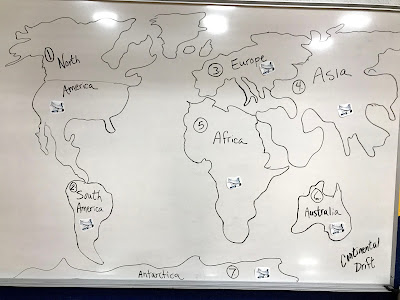 ① North
America
② South
America
③ Europe
④ Asia
⑤ Africa
⑥ Australia
Antarctica ⑦
Continental
Drift